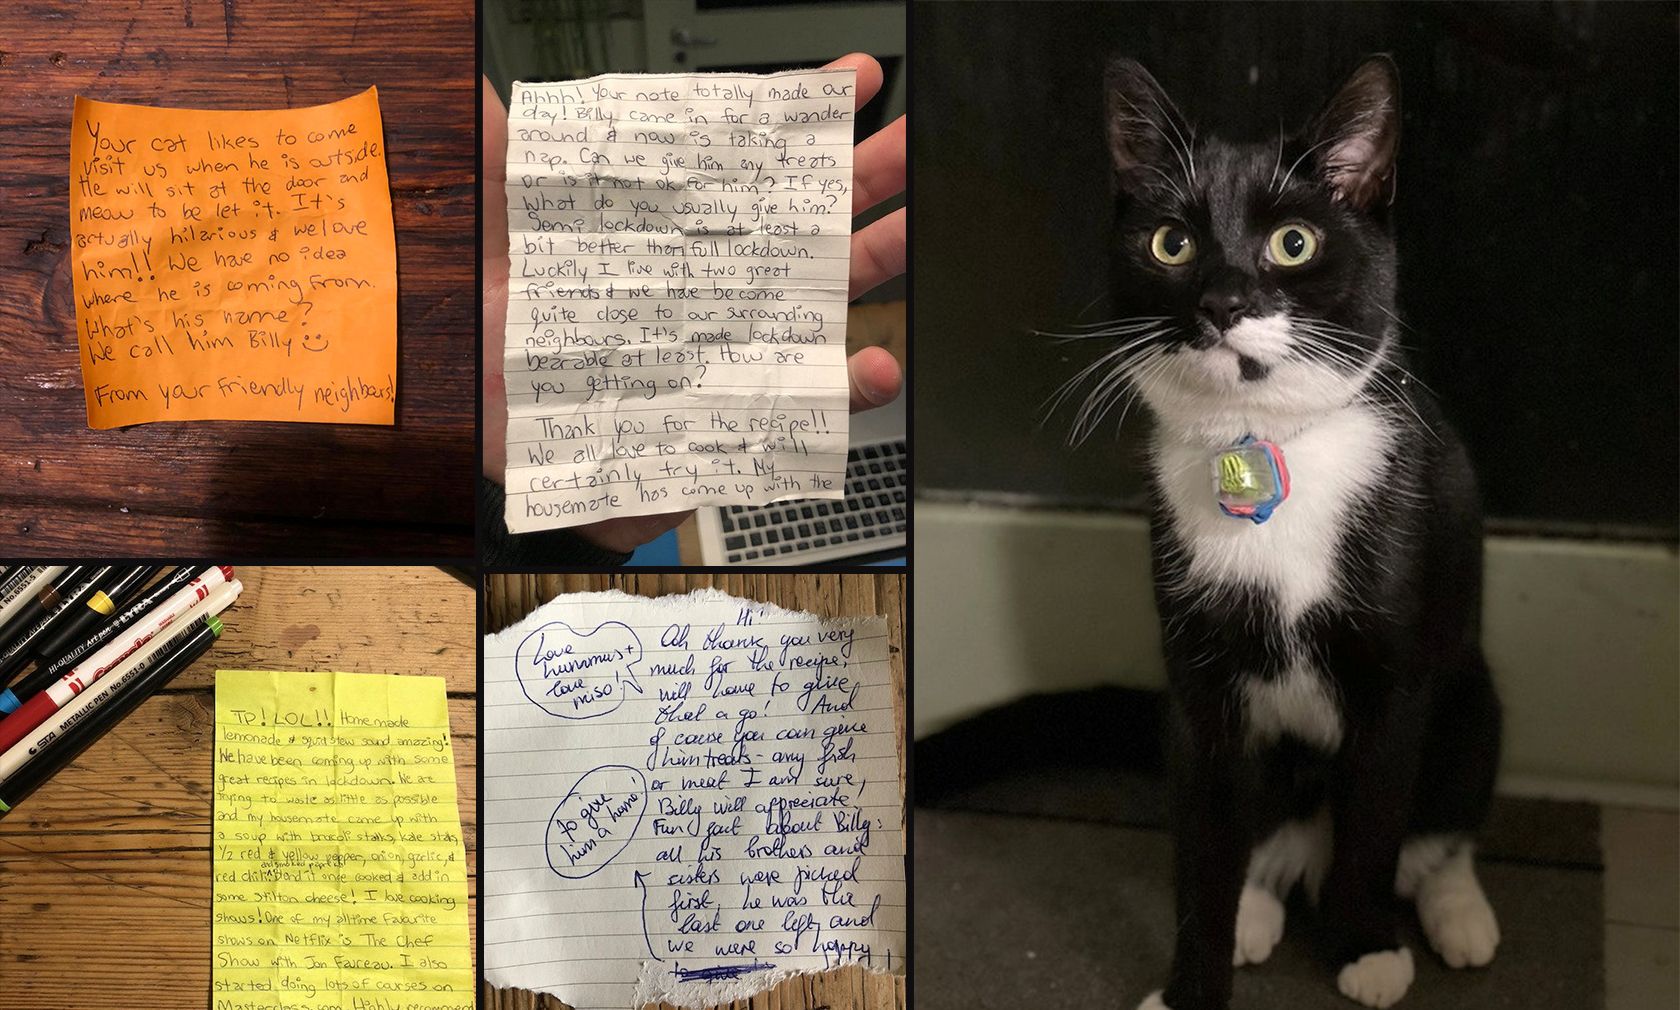 Your cat likes to come
visit us when he is outside.
He will sit at the door and
meow to be let it. It's
actually hilarious & we love
him!! We have no idea
where he is coming from.
What's his name?
We call him Billy
From your friendly neighbours!
Ahhh! Your note totally made our
day! Billy came in for a wander
around & now is taking a
nap. Can we give him any treats
or is it not ok for him? If yes,
what do you usually give him?
Semi lockdown is at least a
bit better than full lockdown.
Luckily I live with two great
friends & we have become
quite close to our surrounding
neighbours. It's made lockdown
bearable at least. How are
you getting on?
Thank you for the recipe!!
We all love to cook & will
certainly try it. My
housemate has come up with the
No.6551.5
HI-QUALITY Art pen
LYRA
STA METALLIC PEN No.6551.0
TP! LOL!! Home made
lemonade & squid stew sound amazing!
We have been coming up with some
great recipes in lockdown. We are
trying to waste as little as possible
and my housemate came up with
a soup with brocoli stalks, kale stalks,
1/2 red & yellow pepper, onion, garlic, &
and smoked paprika
red chili. Blend it once cooked & add in
some stilton cheese! I love cooking
shows! One of my alltime favourite
shows on Netflix is The Chef
Show with Jon Favreau. I also
started doing lots of courses on
Masterclass.com. Highly recommend
Hi!
Love
hummus +
love
miso!
Ah thank you very
much for the recipe,
will have to give
that a go! And
of course you can give
him treats - any fish
or meat I am sure,
Billy will appreciate.
Fun fact about Billy:
all his brothers and
sisters were picked
first, he was the
last one left and
we were so happy
to give
to give
him a home!